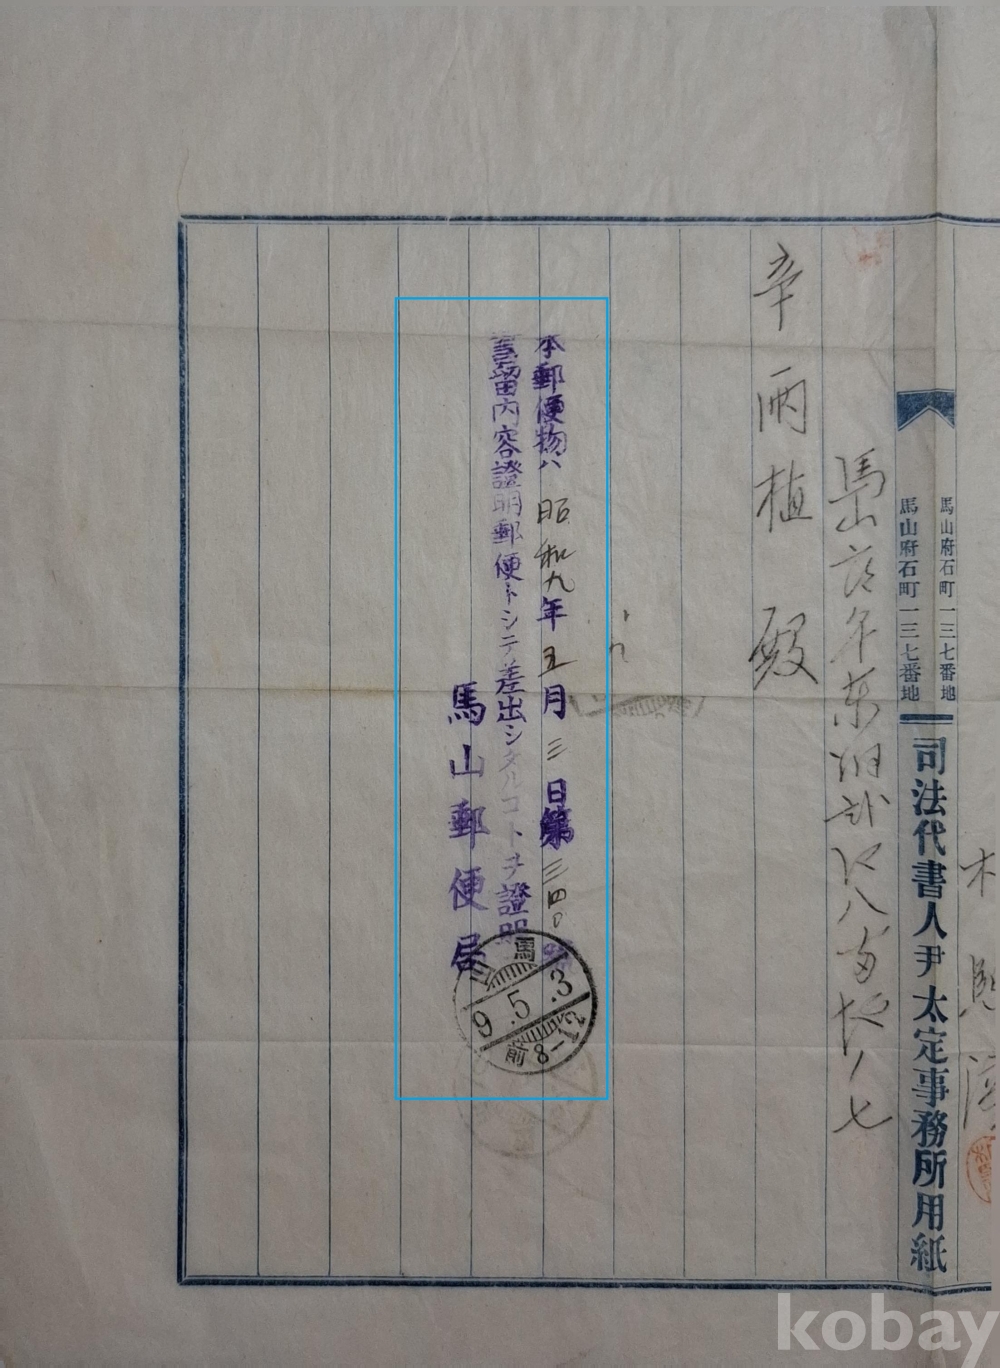 馬山府石町一三七番地
馬山府石町一三七番地
司法代書人尹太定事務所用紙
辛 雨 植 殿
本郵便物ハ昭和九年五月三日第三四〇號
書留内容證明郵便トシテ差出シタルコトヲ證明
馬山郵便局
馬
9.5.3
前8-12
kobay